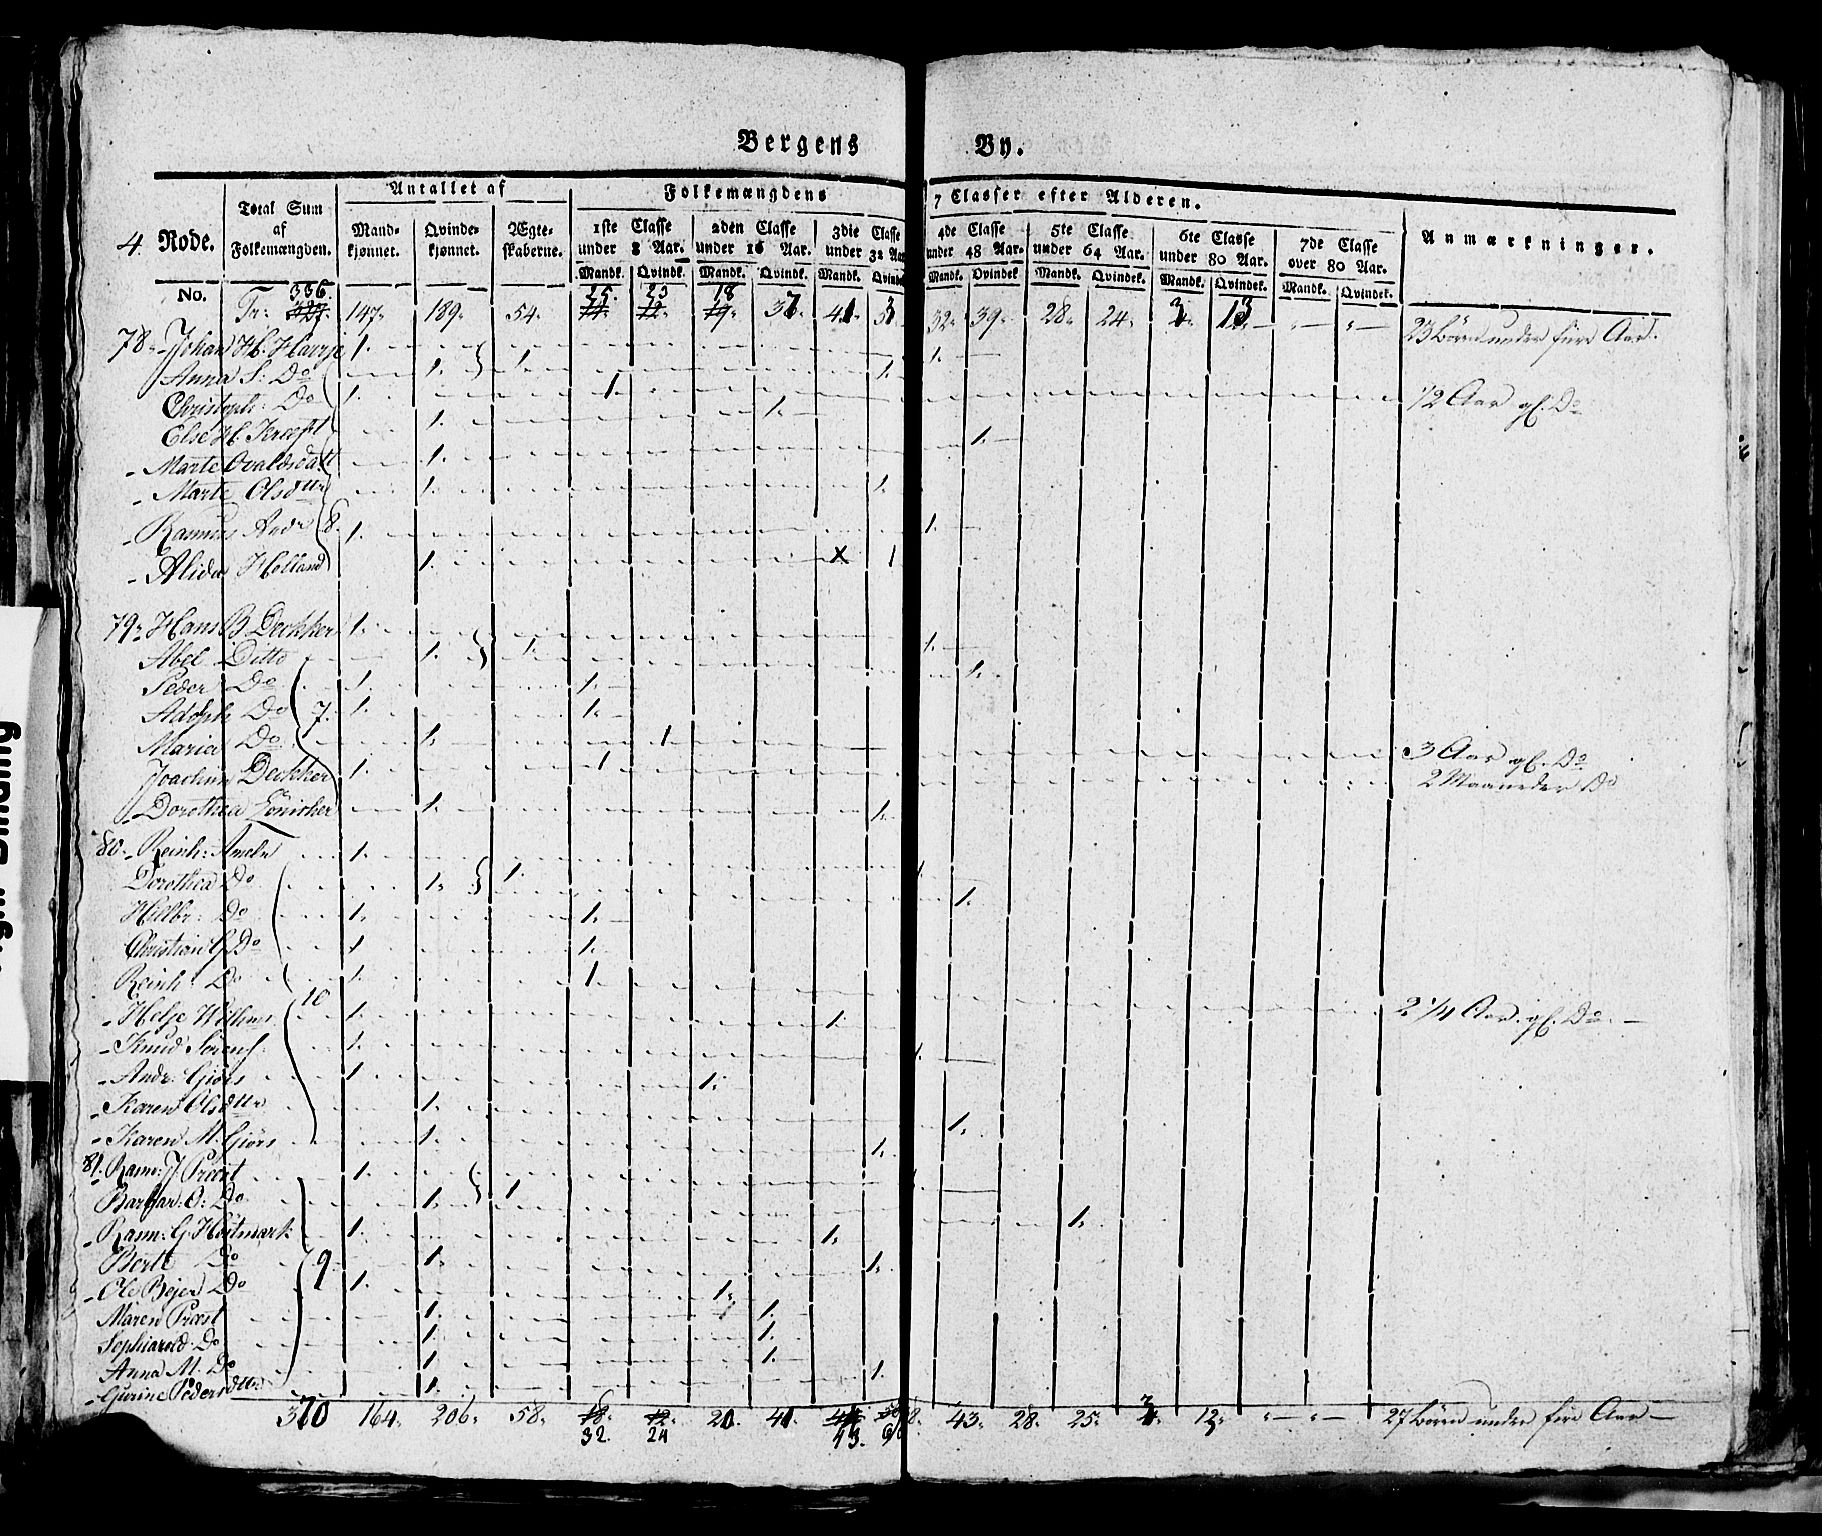 Bergens By.
4. Rode.
Total Sum af Folkemængden.
Antallet af
Mandkjønnet. Qvindekjønnet. Ægteskaberne.
Folkemængdens 7 Classer efter Alderen.
1ste Classe under 8 Aar. 2den Classe under 16 Aar. 3die Classe under 32 Aar 4de Classe under 48 Aar. 5te Classe under 64 Aar. 6te Classe under 80 Aar. 7de Classe over 80 Aar.
Mandk. Qvindk. Mandk. Qvindk. Mandk. Qvindek Mandk. Qvindek Mandk. Qvindek. Mandk. Qvindek. Mandk. Qvindek.
Anmærkninger.
No. Tr: 336. 147. 189. 54. 25. 23 18 37 41 32. 39. 28. 24. 3 13 23 Børn under fire Aar.
78. Johan H. Havrje 1. 1.
Anna S: Do 1. 1. 1.
Christoph: Do 1. 1 1/2 Aar gl. Do
Else H. Kræft 1. 1.
- Marte Ovaldsdatt 1. 1.
- Marte Olsdttr 1. 1.
- Rasmus Andr 8. 1. 1.
- Alida Holland 1. x 1
79. Hans B Deckker 1. 1.
Abel Ditto 1. 1. 1.
Peder Do 1. 1.
Adolph Do 7. 1. 1.
Maria Do 1. 1 3 Aar gl. Do
Joachim Deckker 1. 1 2 Maaneder Do
- Dorothea 1. 1.
80. Reinh: Ameln 1. 1.
Dorothea Do 1. 1. 1.
Hillbr: Do 1. 1.
Christian G Do 1. 1.
Reinh: Do 1. 1 2 1/4 Aar. gl. Do.
- Helje Willums 10 1. 1.
- Knud Sørens: 1. 1.
- Andr: Giørs 1. 1.
- Karen Olsdttr 1. 1.
- Karen M. Giørs 1. 1.
81. Rasm: J Præst 1.
Barbar: O: Do 1. 1
Rasm: G. Høitmark 1. 1.
Berte Do 9 1. 1.
- Ole Bejer Do 1. 1.
Maren Præst 1. 1.
Do 1. 1.
Anna M. Do 1. 1.
- Gurine Pedersdttr 1. 1.
370 164. 206. 58. 20. 41 43. 28. 25. 3 12. 27 Børn under fire Aar
32. 24 43.